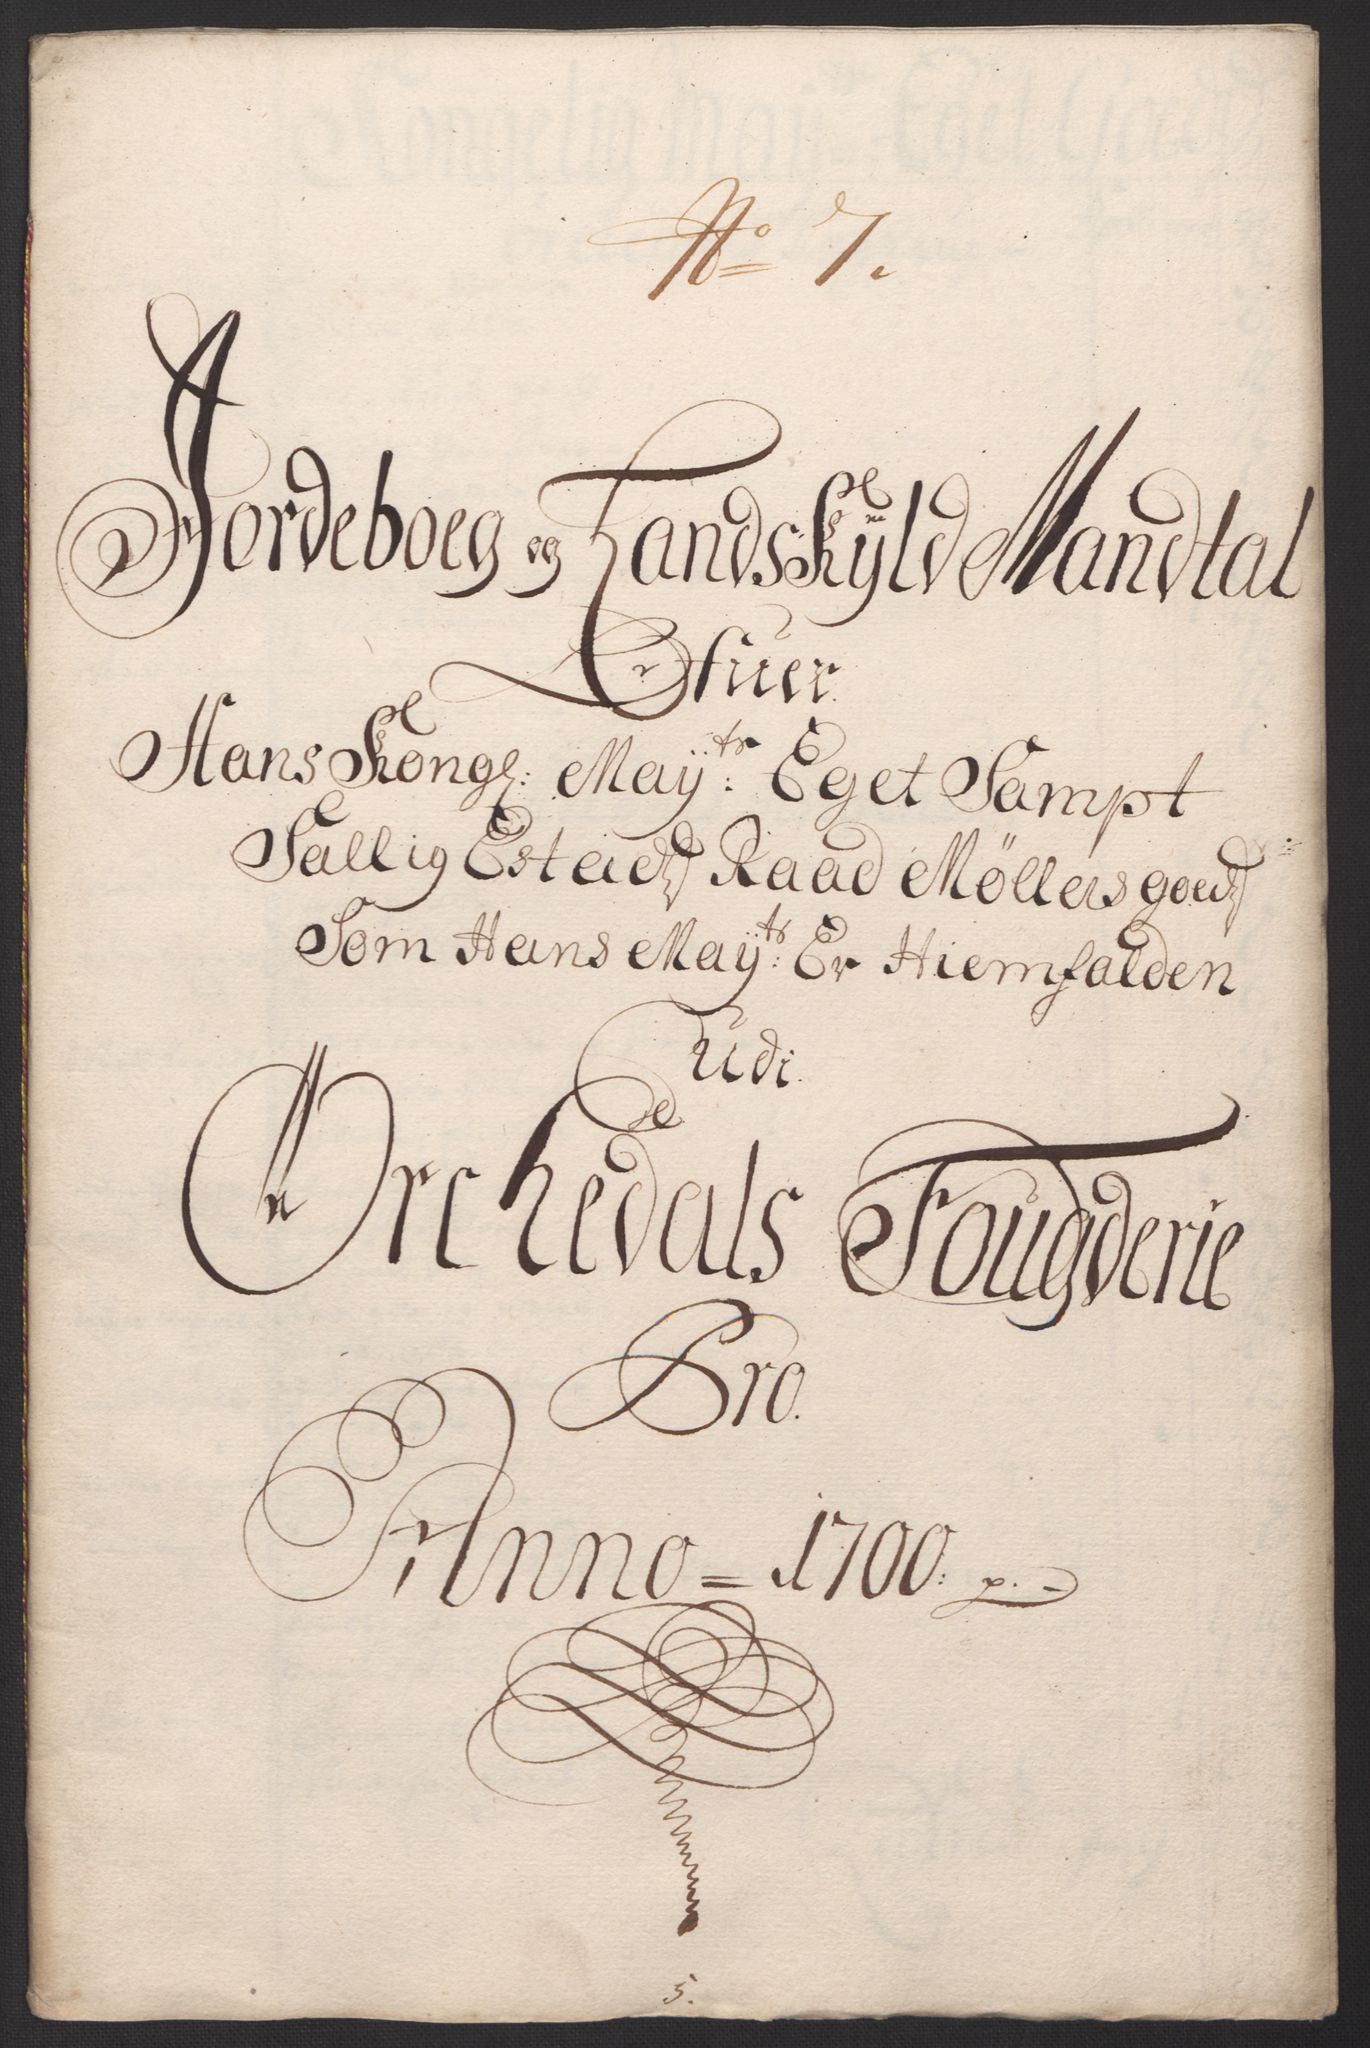 No 7.
Jordeboeg og Landskÿld Mandtal
Ofuer.
Hans Kongl: Maÿts: Eget Sampt
Sallig Esteidz Raad Möllers goedz
Som Hans Maÿts: Er Hiemfalden
Udi.
Orchedals Fougderie
Pro.
Anno = 1700. p. -
5.